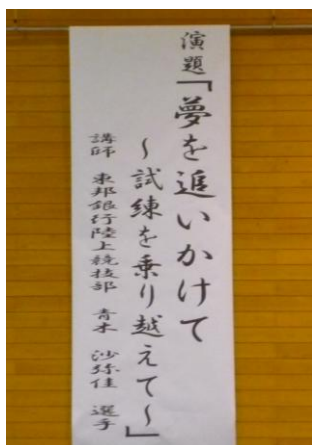 演題『夢を追いかけて
～試練を乗り越えて～』
講師 東邦銀行陸上競技部 青木 沙弥佳 選手